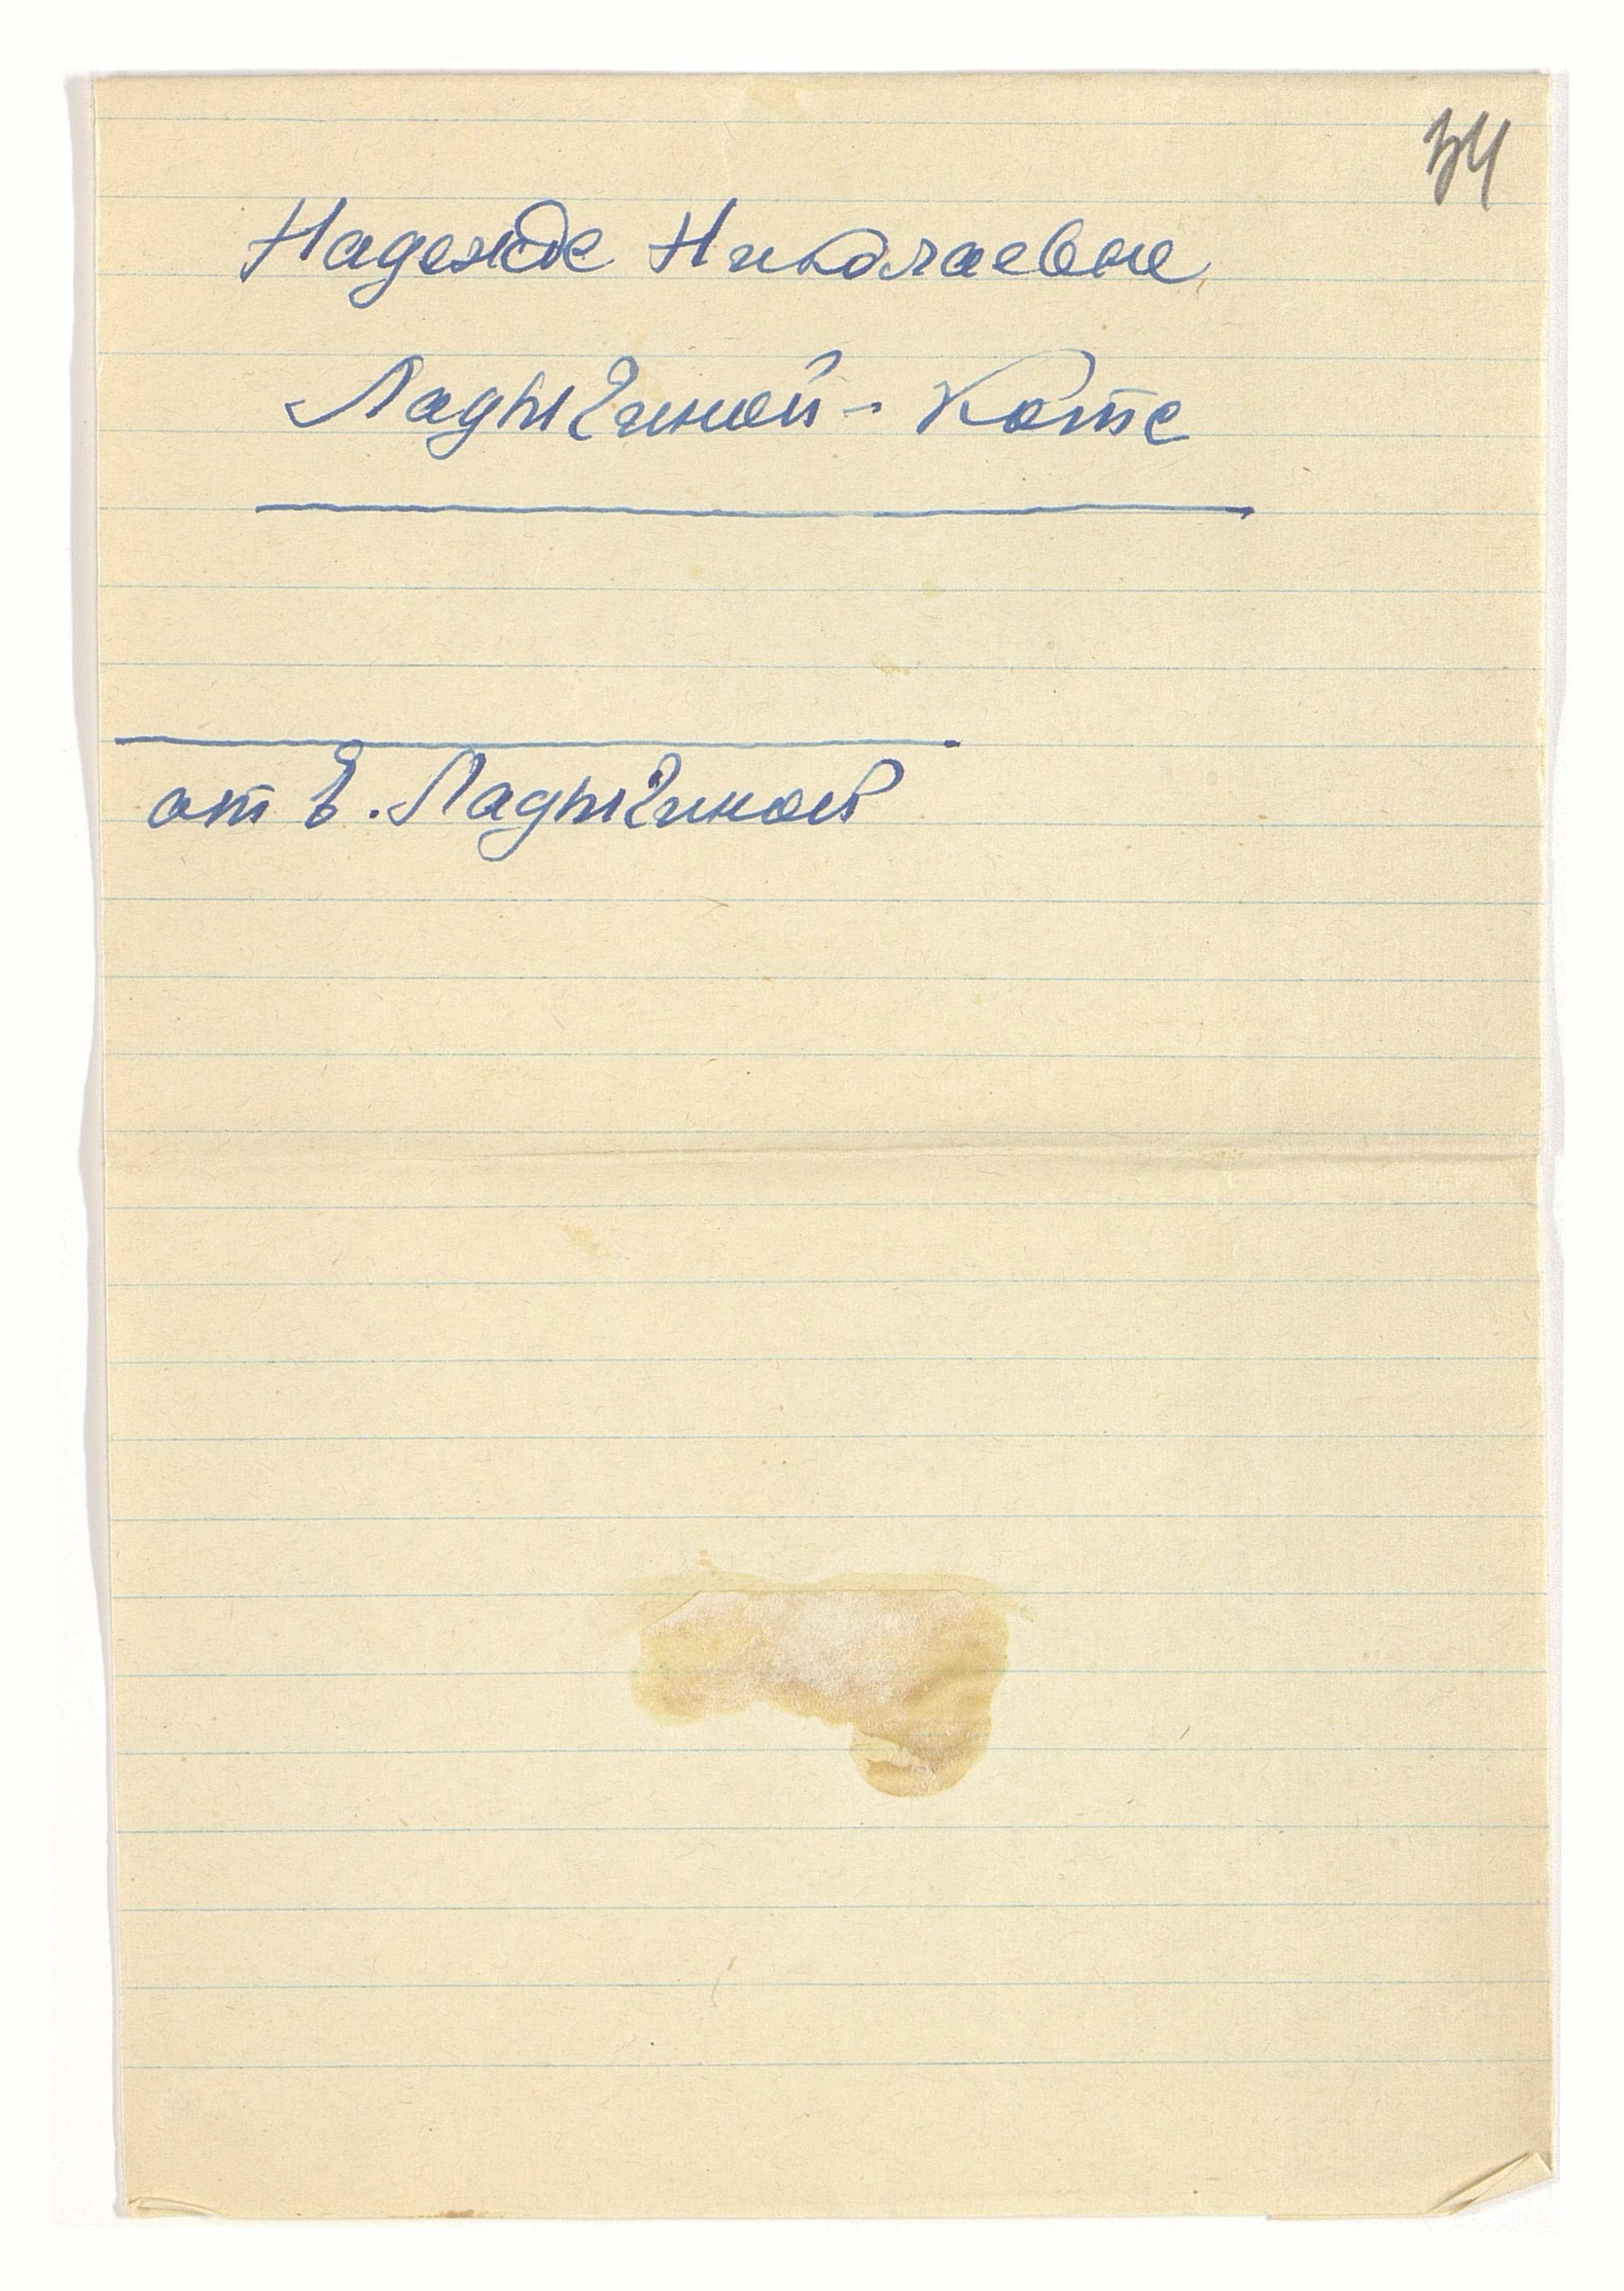 34
Надежде Николаевне
Ладыгиной - Котс
от Е. Ладыгиной